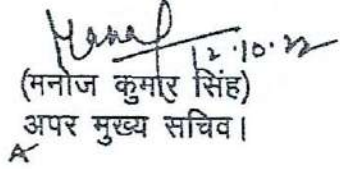 12.10.22
(मनोज कुमार सिंह)
अपर मुख्य सचिव।